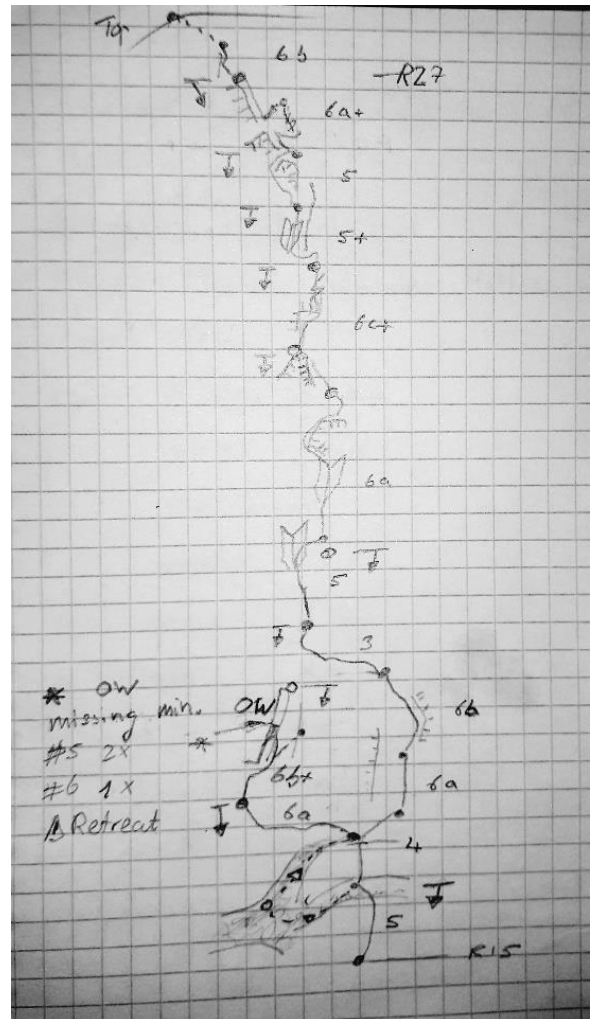 Top
6b
R27
6a+
5
5+
6c+
6a
5
3
* OW
missing min.
#5 2x
#6 1x
Retreat
OW
*
6b
6b+
6a
6a
4
5
R15